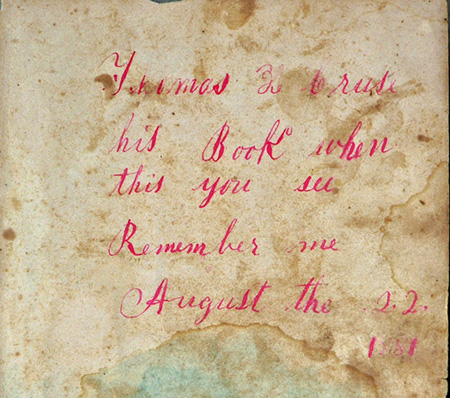 Thomas
his Book when
this you see
Remember me
August the 22